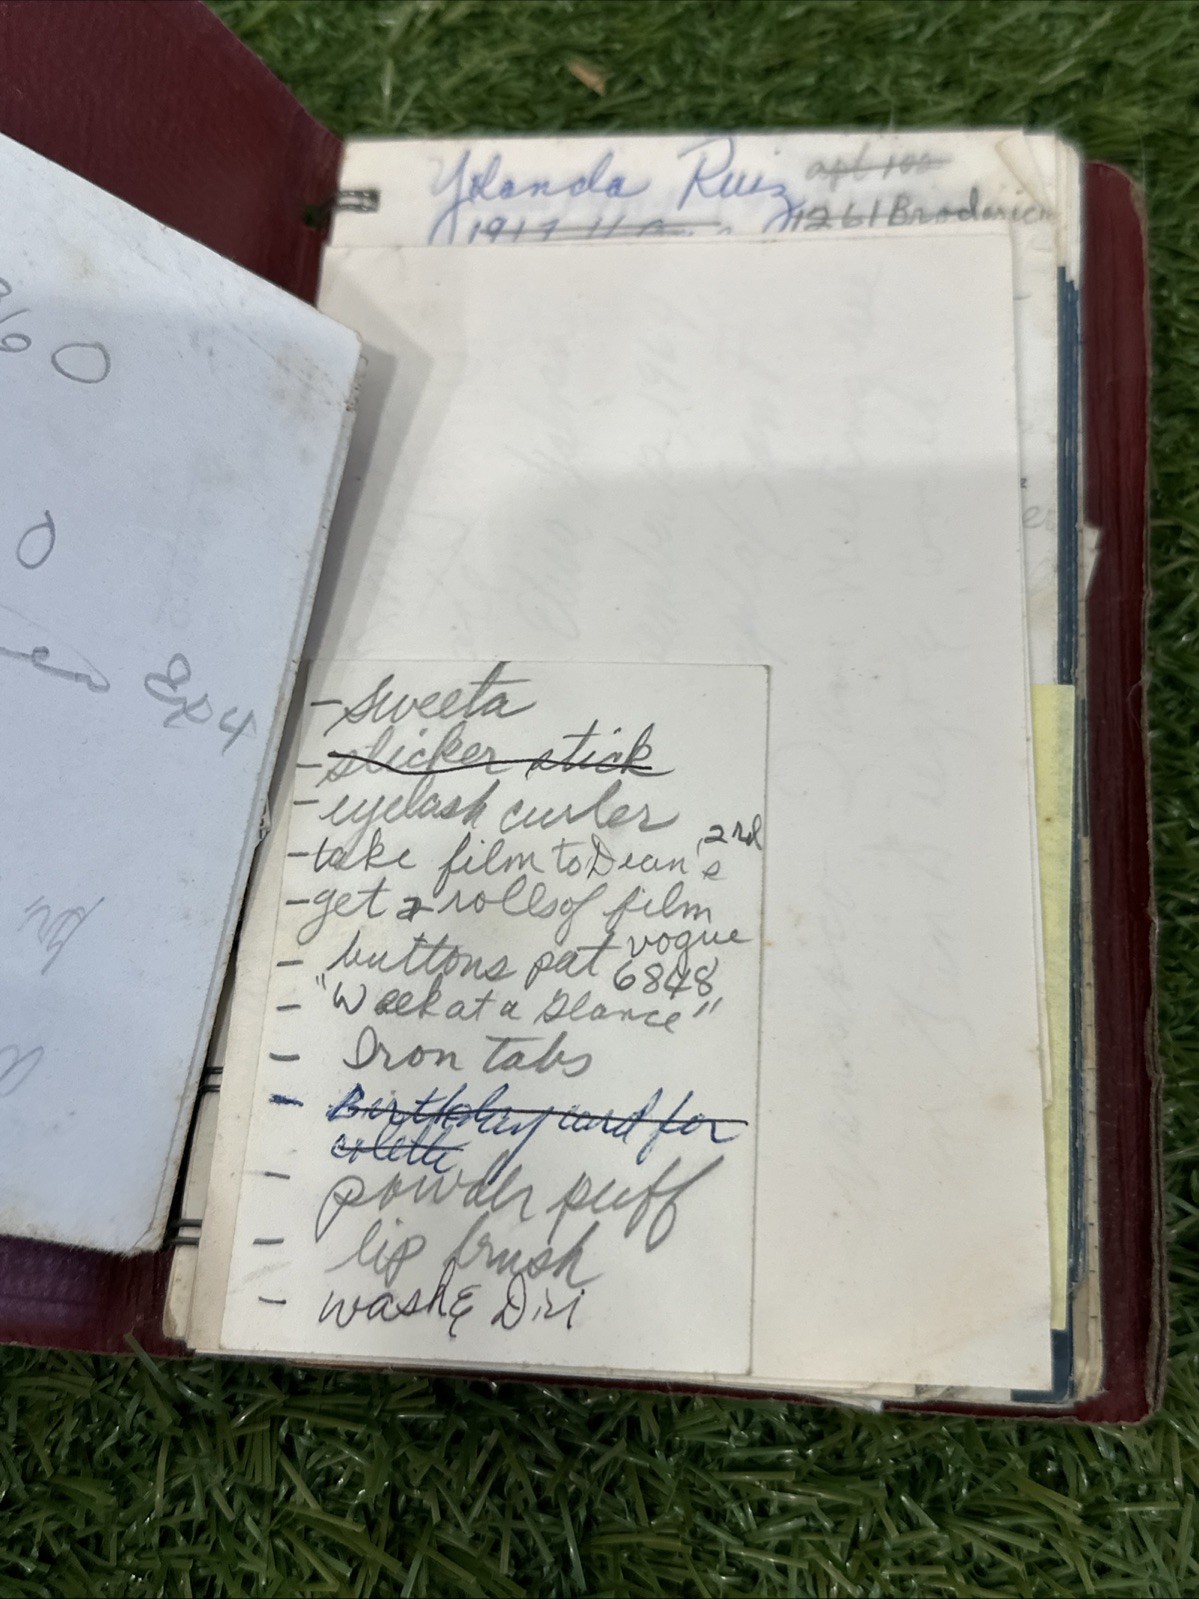 Yolanda Ruiz apt 102
1261 Broderick
60
0
8x4
- sweeta
- slicker stick
- eyelash curler
- take film to Dean's 2nd
- get 2 rolls of film
- buttons pat vogue 6848
- "Week at a Glance"
- Iron tabs
- Birthday card for
colette
- powder puff
- lip brush
- wash & Dri